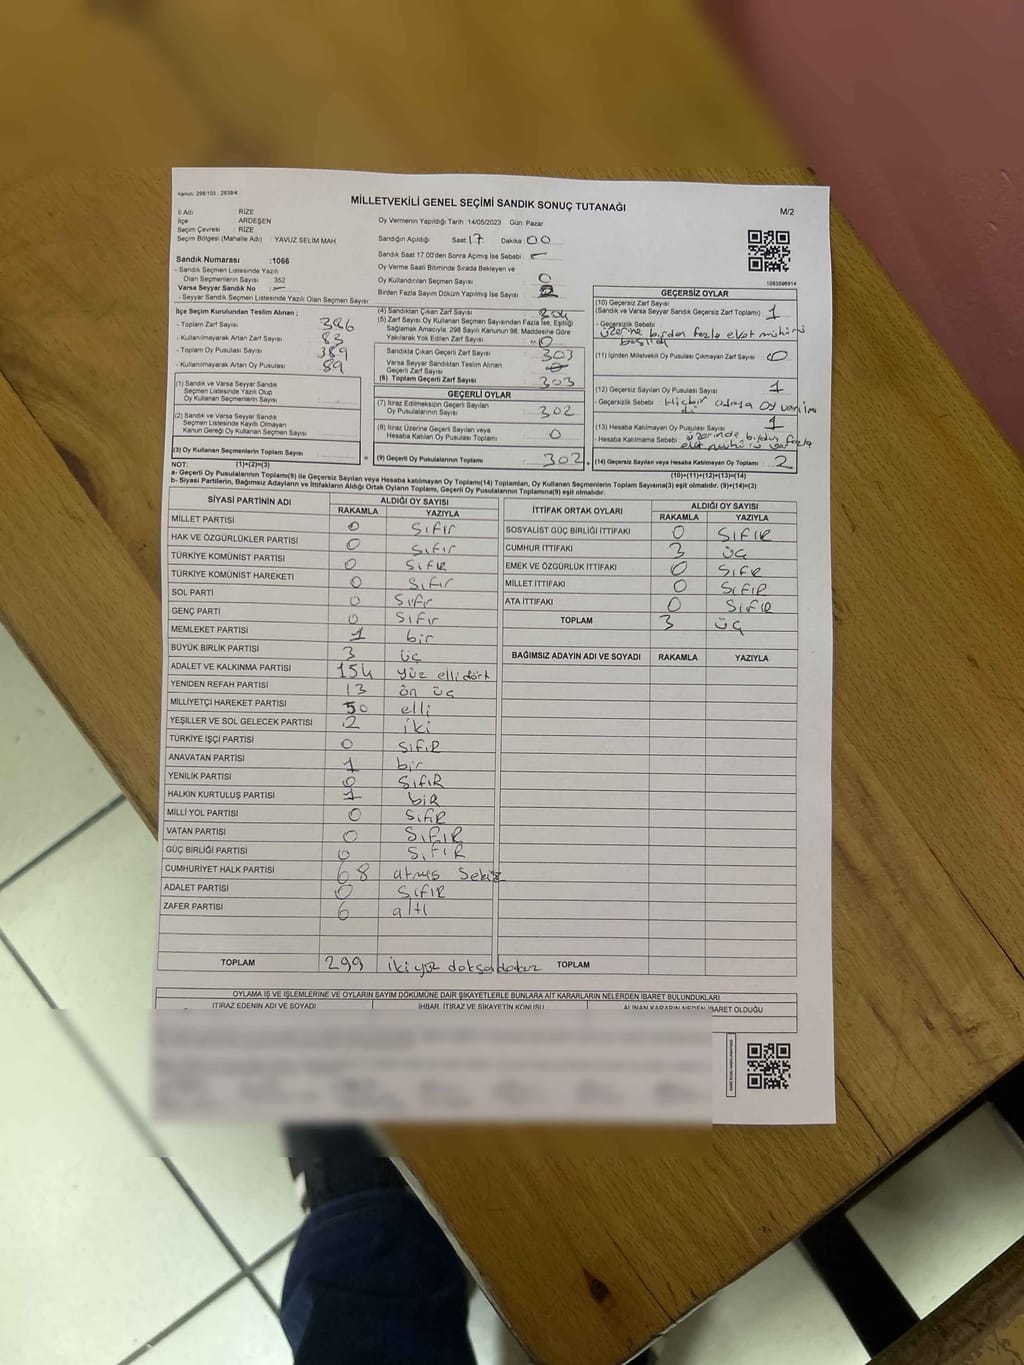 Kanun: 298/105 , 2839/4
MİLLETVEKİLİ GENEL SEÇİMİ SANDIK SONUÇ TUTANAĞI
M/2
İl Adı RİZE
İlçe ARDEŞEN
Seçim Çevresi RİZE
Seçim Bölgesi (Mahalle Adı) : YAVUZ SELİM MAH.
Oy Vermenin Yapıldığı Tarih :14/05/2023 Gün: Pazar
Sandığın Açıldığı Saat 17 Dakika 00
Sandık Saat 17:00'den Sonra Açılmış İse Sebebi -
Oy Verme Saati Bitiminde Sırada Bekleyen ve
Oy Kullandırılan Seçmen Sayısı 0
Birden Fazla Sayım Döküm Yapılmış İse Sayısı
1083596814
Sandık Numarası :1066
- Sandık Seçmen Listesinde Yazılı
Olan Seçmenlerin Sayısı 352
Varsa Seyyar Sandık No : -
- Seyyar Sandık Seçmen Listesinde Yazılı Olan Seçmen Sayısı
İlçe Seçim Kurulundan Teslim Alınan ;
- Toplam Zarf Sayısı 386
- Kullanılmayarak Artan Zarf Sayısı 83
- Toplam Oy Pusulası Sayısı 389
- Kullanılmayarak Artan Oy Pusulası 89
(1) Sandık ve Varsa Seyyar Sandık
Seçmen Listesinde Yazılı Olup
Oy Kullanan Seçmenlerin Sayısı
(2) Sandık ve Varsa Seyyar Sandık
Seçmen Listesinde Kayıtlı Olmayan
Kanun Gereği Oy Kullanan Seçmen Sayısı
(3) Oy Kullanan Seçmenlerin Toplam Sayısı
(4) Sandıktan Çıkan Zarf Sayısı : 304
(5) Zarf Sayısı Oy Kullanan Seçmen Sayısından Fazla İse, Eşitliği
Sağlamak Amacıyla, 298 Sayılı Kanunun 98. Maddesine Göre
Yakılarak Yok Edilen Zarf Sayısı 0
Sandıkta Çıkan Geçerli Zarf Sayısı 303
Varsa Seyyar Sandıktan Teslim Alınan
Geçerli Zarf Sayısı
(6) Toplam Geçerli Zarf Sayısı 303
GEÇERLİ OYLAR
(7) İtiraz Edilmeksizin Geçerli Sayılan
Oy Pusulalarının Sayısı 302
(8) İtiraz Üzerine Geçerli Sayılan veya
Hesaba Katılan Oy Pusulası Toplamı 0
(9) Geçerli Oy Pusulalarının Toplamı 302
GEÇERSİZ OYLAR
(10) Geçersiz Zarf Sayısı
(Sandık ve Varsa Seyyar Sandık Geçersiz Zarf Toplamı) : 1
- Geçersizlik Sebebi üzerine birden fazla evet mühürü
basıldı
(11) İçinden Milletvekili Oy Pusulası Çıkmayan Zarf Sayısı 0
(12) Geçersiz Sayılan Oy Pusulası Sayısı 1
- Geçersizlik Sebebi : Hiçbir adaya oy verilme
di
(13) Hesaba Katılmayan Oy Pusulası Sayısı 1
- Hesaba Katılmama Sebebi : üzerinde birden fazla
evet mühürü
(14) Geçersiz Sayılan veya Hesaba Katılmayan Oy Toplamı : 2
NOT: (1)+(2)=(3)
(10)+(11)+(12)+(13)=(14)
a- Geçerli Oy Pusulalarının Toplamı(9) ile Geçersiz Sayılan veya Hesaba katılmayan Oy Toplamı(14) Toplamları, Oy Kullanan Seçmenlerin Toplam Sayısına(3) eşit olmalıdır. (9)+(14)=(3)
b- Siyasi Partilerin, Bağımsız Adayların ve İttifakların Aldığı Ortak Oyların Toplamı, Geçerli Oy Pusulalarının Toplamına(9) eşit olmalıdır.
SİYASİ PARTİNİN ADI ALDIĞI OY SAYISI
RAKAMLA YAZIYLA
MİLLET PARTİSİ 0 Sıfır
HAK VE ÖZGÜRLÜKLER PARTİSİ 0 Sıfır
TÜRKİYE KOMÜNİST PARTİSİ 0 SıfıR
TÜRKİYE KOMÜNİST HAREKETİ 0 Sıfır
SOL PARTİ 0 Sıfır
GENÇ PARTİ 0 Sıfır
MEMLEKET PARTİSİ 1 bir
BÜYÜK BİRLİK PARTİSİ 3 üç
ADALET VE KALKINMA PARTİSİ 154 yüz ellidört
YENİDEN REFAH PARTİSİ 13 ön üç
MİLLİYETÇİ HAREKET PARTİSİ 50 elli
YEŞİLLER VE SOL GELECEK PARTİSİ 2 iki
TÜRKİYE İŞÇİ PARTİSİ 0 SıfıR
ANAVATAN PARTİSİ 1 bir
YENİLİK PARTİSİ 0 SıfıR
HALKIN KURTULUŞ PARTİSİ 1 biR
MİLLİ YOL PARTİSİ 0 SıfıR
VATAN PARTİSİ 0 SıfıR
GÜÇ BİRLİĞİ PARTİSİ 0 SıfıR
CUMHURİYET HALK PARTİSİ 68 atmış Sekiz
ADALET PARTİSİ 0 SıfıR
ZAFER PARTİSİ 6 altı
TOPLAM 299 ikiyüz doksadokuz
İTTİFAK ORTAK OYLARI ALDIĞI OY SAYISI
RAKAMLA YAZIYLA
SOSYALİST GÜÇ BİRLİĞİ İTTİFAKI 0 SıfıR
CUMHUR İTTİFAKI 3 üç
EMEK VE ÖZGÜRLÜK İTTİFAKI 0 SıfR
MİLLET İTTİFAKI 0 SıfıR
ATA İTTİFAKI 0 SıfıR
TOPLAM 3 üç
BAĞIMSIZ ADAYIN ADI VE SOYADI RAKAMLA YAZIYLA
TOPLAM
OYLAMA İŞ VE İŞLEMLERİNE VE OYLARIN SAYIM DÖKÜMÜNE DAİR ŞİKAYETLERLE BUNLARA AİT KARARLARIN NELERDEN İBARET BULUNDUKLARI
İTİRAZ EDENİN ADI VE SOYADI İHBAR, İTİRAZ VE ŞİKAYETİN KONUSU ALINAN KARARIN NEDEN İBARET OLDUĞU